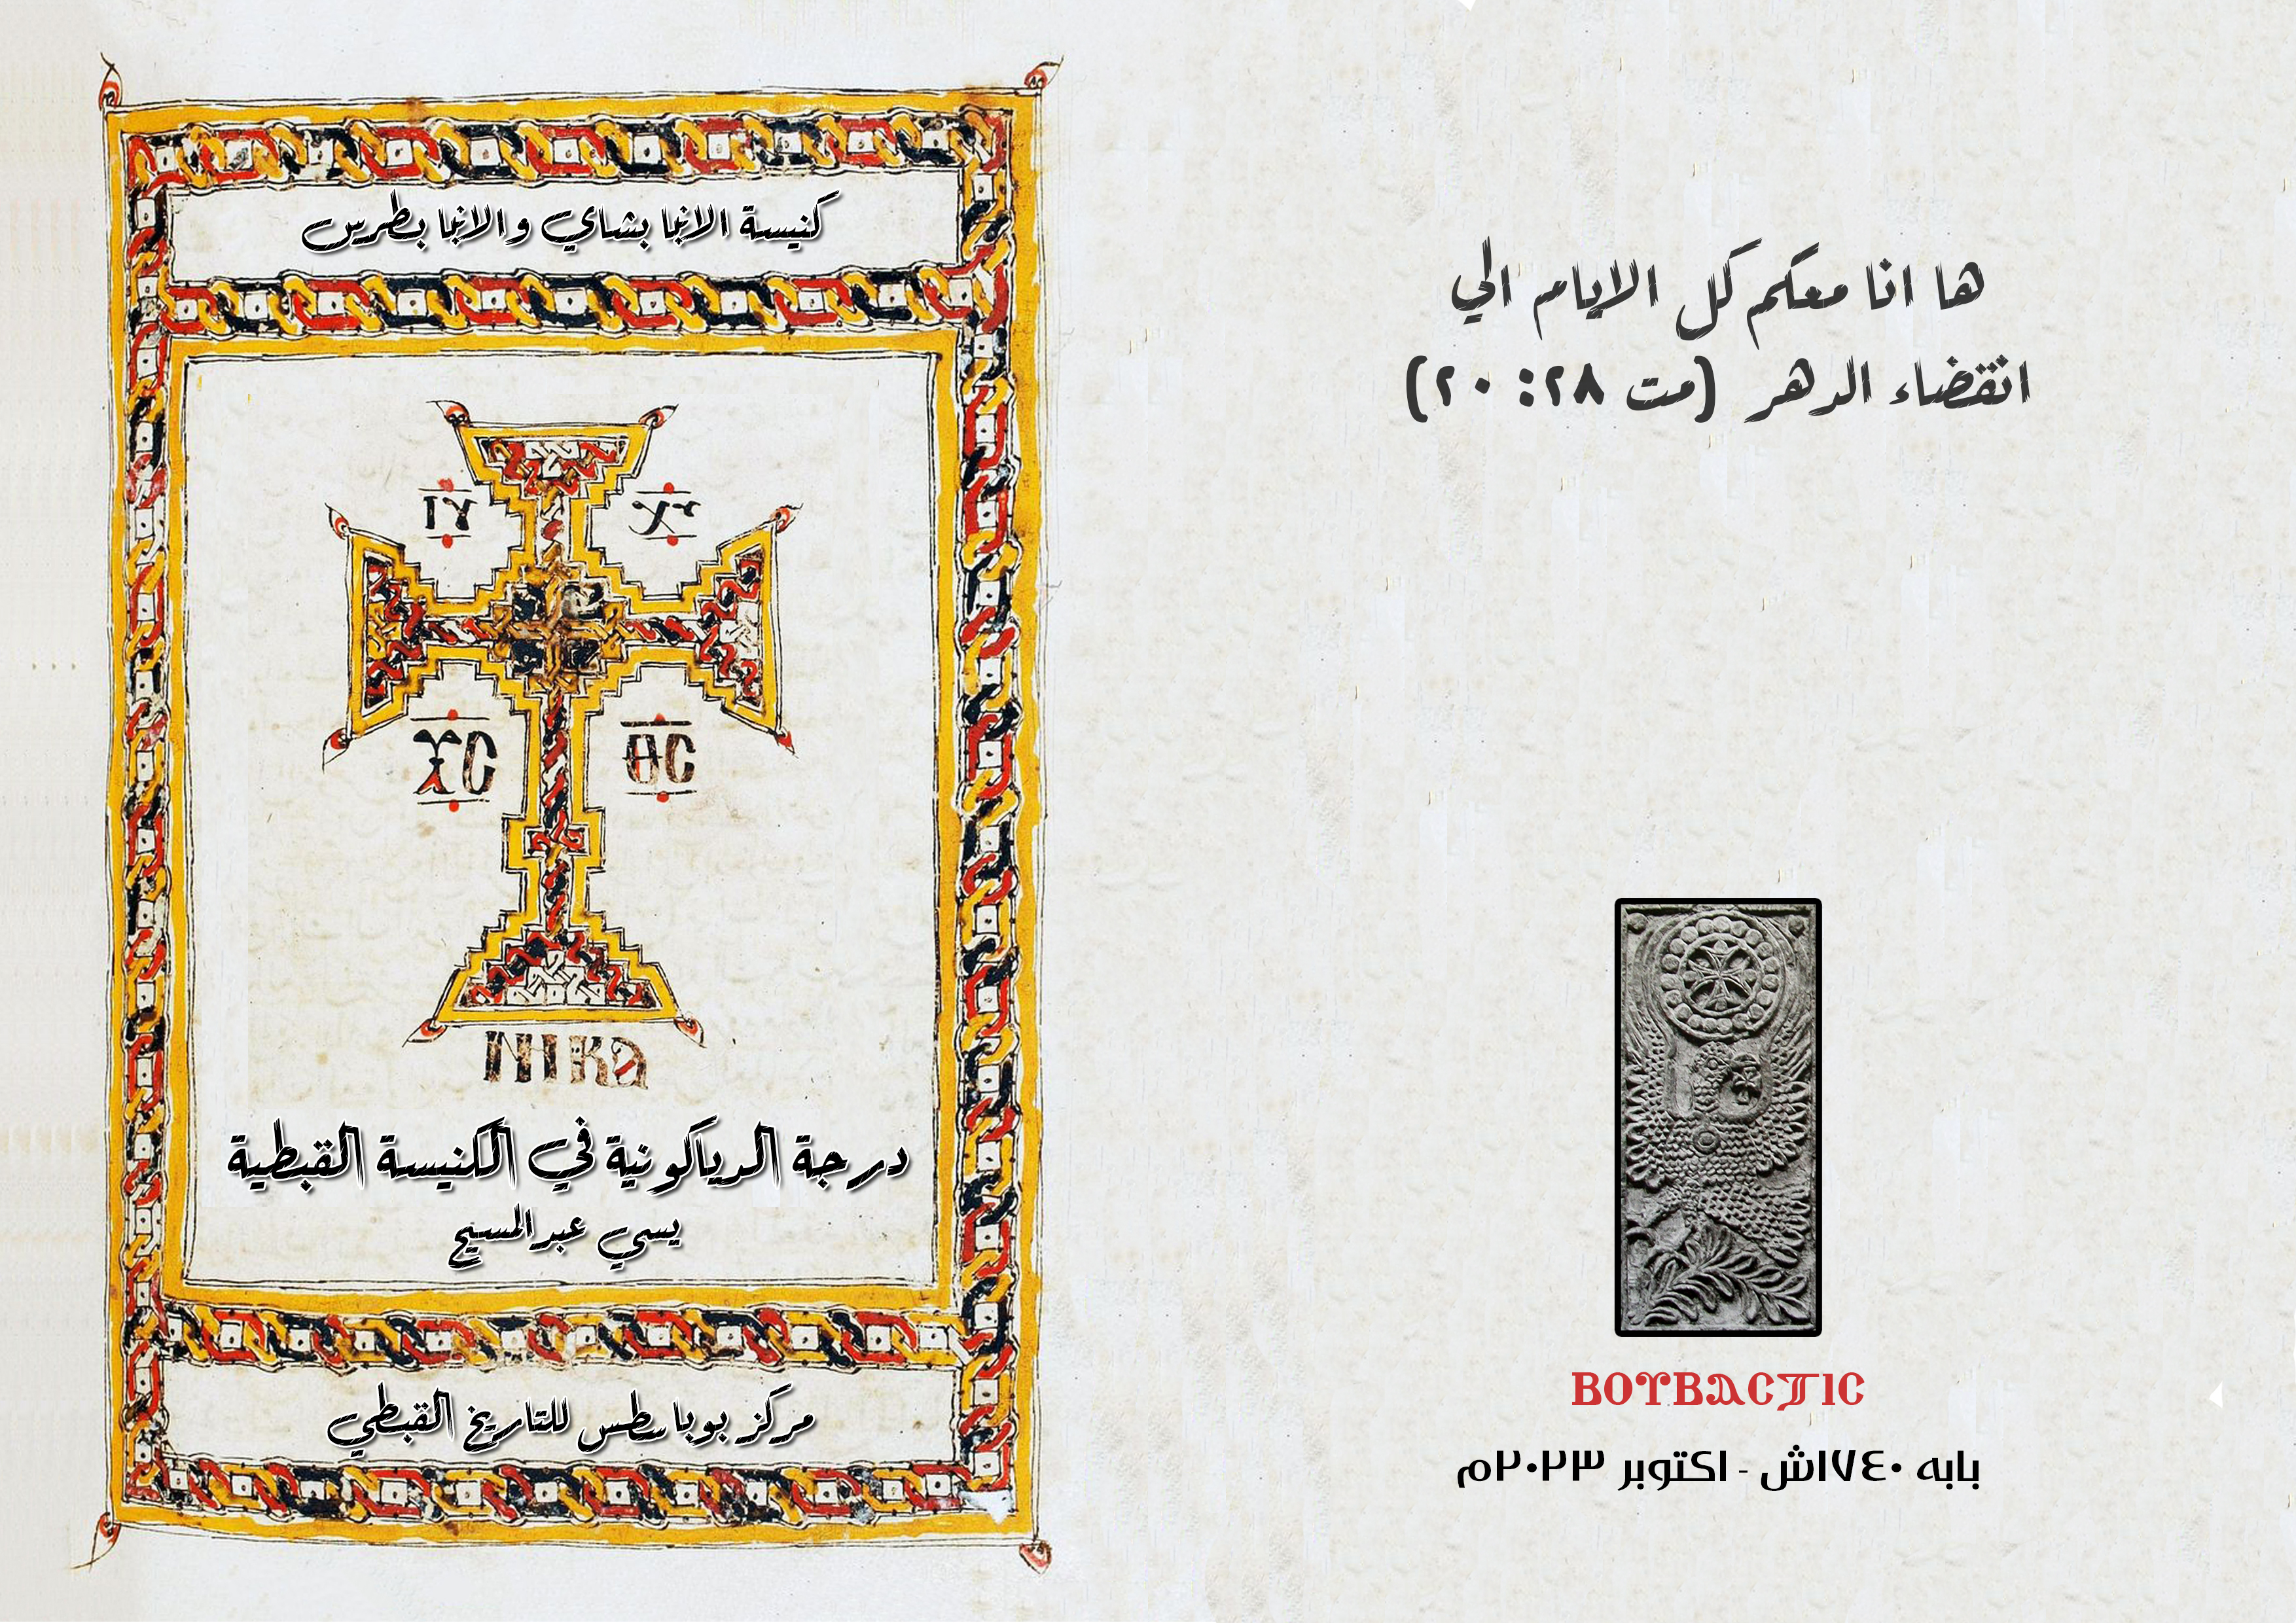 كنيسة الانبا بشاي والانبا بطرس
ⲓⲩ ⲭⲩ
ⲭⲥ ⲑⲥ
ⲛⲓⲕⲁ
درجة الدياكونية في الكنيسة القبطية
يسي عبدالمسيح
مركز بوباسطس للتاريخ القبطي
ها انا معكم كل الايام الي
انقضاء الدهر (مت ٢٨: ٢٠)
ⲂⲞⲨⲂⲀⲤⲦⲒⲤ
بابه ١٧٤٠ش - اكتوبر ٢٠٢٣م